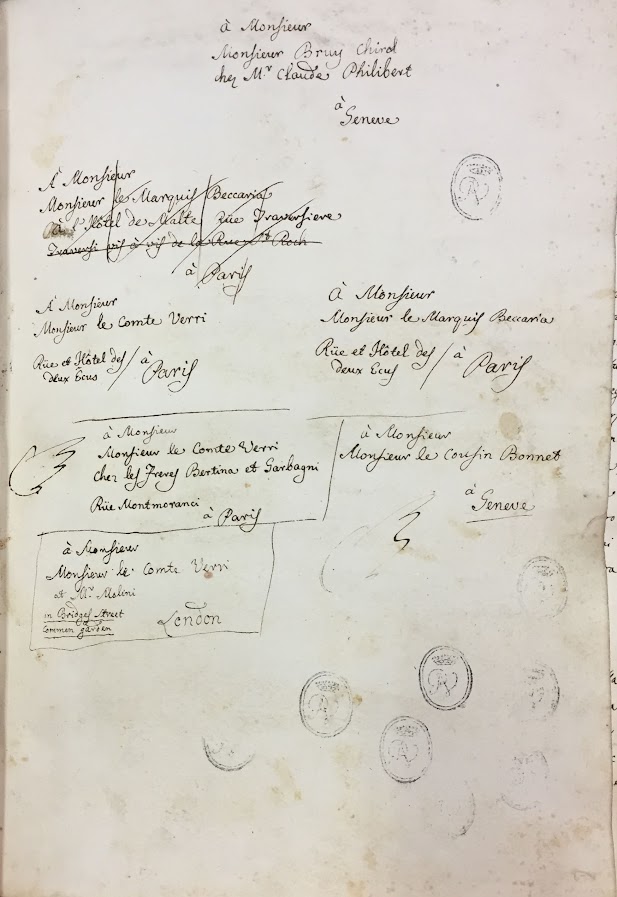 à Monsieur
Monsieur Bruy Chirol
chez Mr. Claude Philibert
à
Geneve
A Monsieur
Monsieur le Marquis Beccaria
à l'Hôtel de Malte Rüe Traversiere
Traversi vis à vis de la Rue St Roch
à Paris
A Monsieur
Monsieur le Comte Verri
Rüe et Hôtel des
deux Ecus / à Paris
A Monsieur
Monsieur le Marquis Beccaria
Rüe et Hôtel des
deux Ecus / à Paris
à Monsieur
Monsieur le Comte Verri
chez les Freres Bertina et Garbagni
Rüe Montmoranci
à Paris
à Monsieur
Monsieur le Cousin Bonnet
à
Geneve
à Monsieur
Monsieur le Comte Verri
et Mr. Molini
in Bridges Street
Commen garden
London